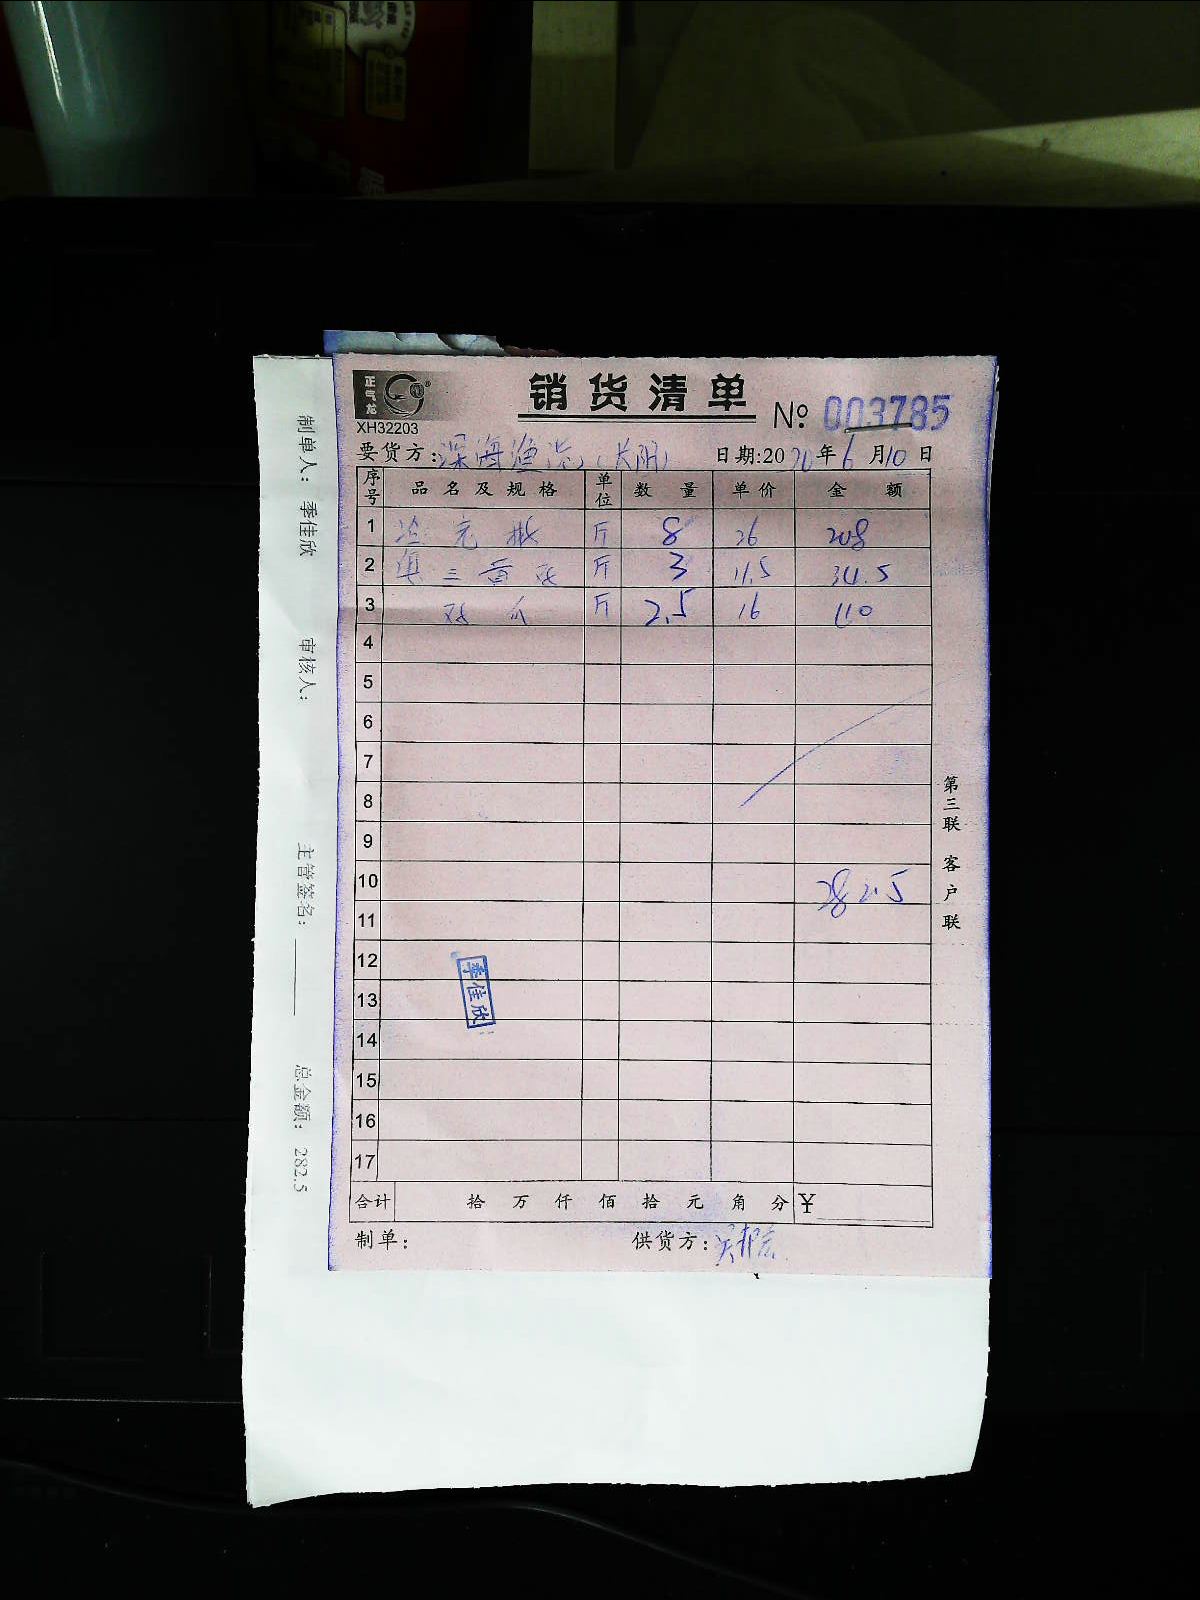 正气龙
XH32203
销货清单
№ 003785
要货方:深海渔
日期:20 年6月10日
序号 品名及规格 单位 数量 单价 金额
1 斤 8 26 208
2 三黄 斤 3 11.5 34.5
3 爪 斤 2.5 16
4
5
6
7
8
9
10 282.5
11
12
13
14
15
16
17
季佳欣
合计 拾 万 仟 佰 拾 元 角 分 ¥
制单:
供货方:
第三联 客户联
制单人: 季佳欣 审核人: 主管签名: 总金额: 282.5